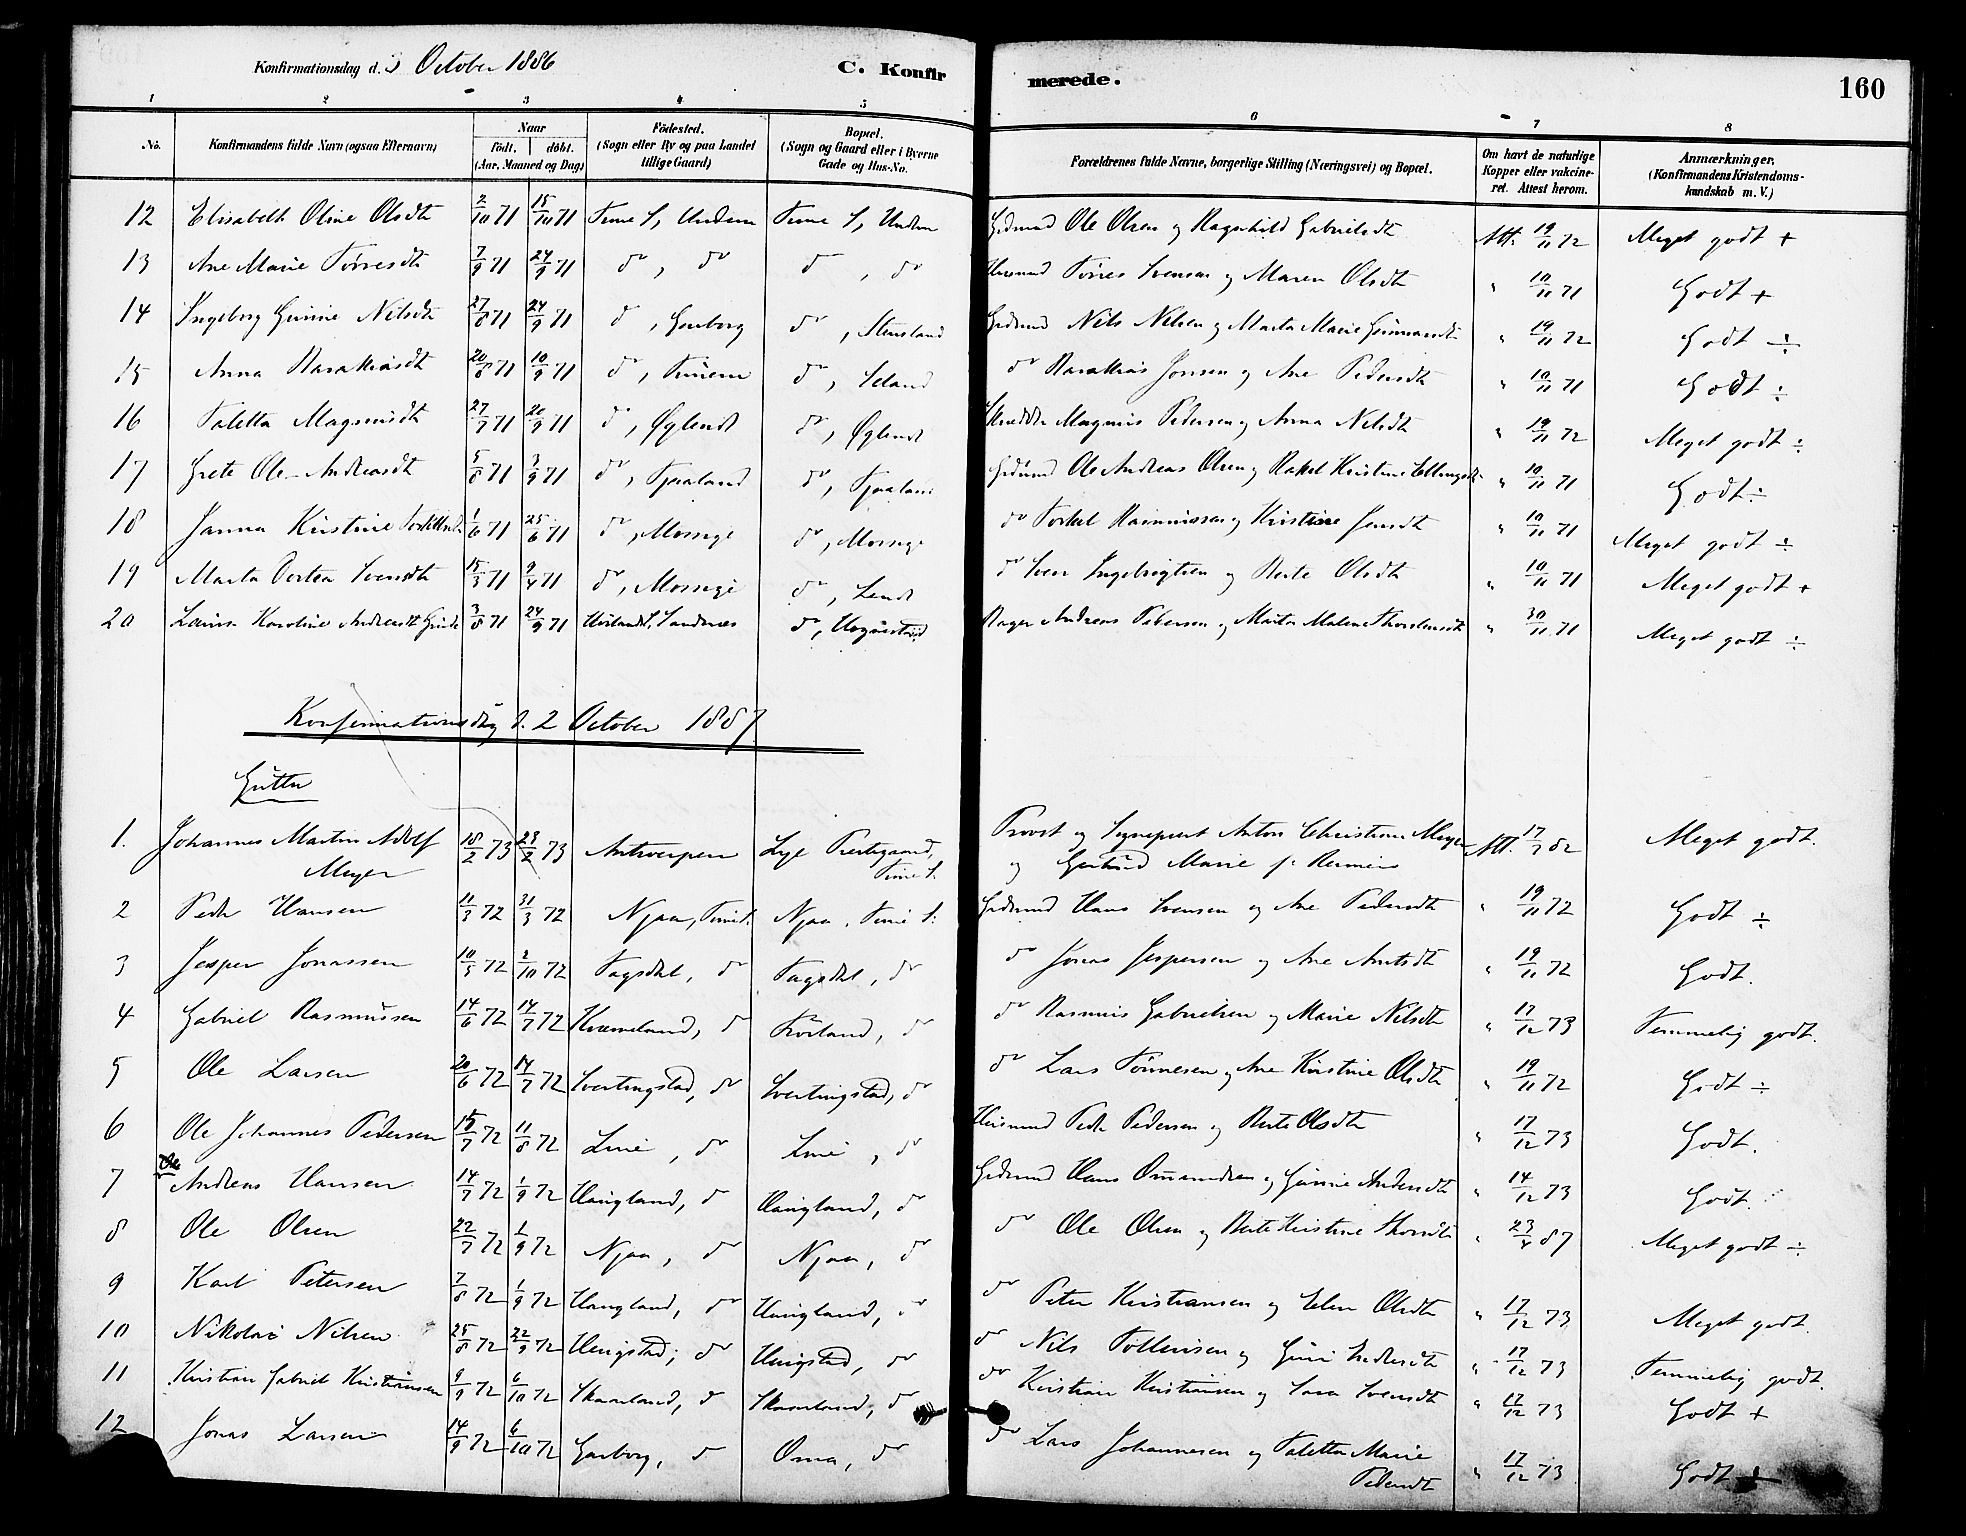 Konfirmationsdag d. 3 October 1886 C. Konfirmerede. 160
1 2 3 4 5 6 7 8
No. Konfirmandens fulde Navn (ogsaa Efternavn) Naar født. døbt. (Aar, Maaned og Dag) Fødested. (Sogn eller By og paa Landet tillige Gaard) Bopæl. (Sogn og Gaard eller i Byerne Gade og Hus-No. Forældrenes fulde Navne, borgerlige Stilling (Næringsvei) og Bopæl. Om havt de naturlige Kopper eller vakcineret. Attest herom. Anmærkninger. (Konfirmandens Kristendomskundskab m. V.)
12 Elisabeth Oline Olsdt 2/10 71 15/10 71 Time S, Undem Time S, Undem Grdmand Ole Olsen og Ragnhild Gabrielsdt Att. 19/11 72 Meget godt +
13 Ane Marie Tørresdt 7/9 71 24/9 71 do, do do, do Husmand Tørres Svensen og Maren Olsdt " 10/11 71 Godt +
14 Ingeborg Gurine Nilsdt 27/8 71 24/9 71 do, Garborg do, Stensland Grdmand Nils Nilsen og Marta Marie Gunnarsdt " 19/11 72 Godt ÷
15 Anna 20/8 71 10/9 71 do, do, Jonsen og Ane Pedersdt " 10/11 71 Godt ÷
16 Taletta Magnusdt 27/7 71 20/9 71 do, Øglend do, Øglend Magnus Pedersen og Anna Nilsdt " 19/11 72 Meget godt ÷
17 Grete Ole-Andreasdt 5/8 71 3/9 71 do, Tjaaland do, Tjaaland Grdmand Ole Andreas Olsen og Rakel Kristine " 10/11 71 Godt ÷
18 Janna Kristine Torkilsdt 1/6 71 25/6 71 do, Mossige do, Mossige do Torkel Rasmussen og Kristine Jensdt " 10/11 71 Meget godt ÷
19 Marta Svensdt 15/3 71 9/4 71 do, Mossige do, Lende do Sven Ingebrigtsen og Berte Olsdt " 10/11 71 Meget godt +
20 Karoline Andreasdt 3/8 71 24/9 71 Høiland S, Sandnes do, Bager Andreas Pedersen og Marta Malene " 30/11 71 Meget godt ÷
Konfirmationsdag d. 2 October 1887
Gutter
1. Johannes Martin Adolf 18/2 73 23/2 73 Antwerpen Lye Prestegaard, Provst og Sognepræst Anton Christian Meyer Att. 17/7 82 Meget godt.
Meyer Time S. og Gertrud Marie f.
2 Peder Hansen 11/3 72 31/3 72 Njaa, Time S. Njaa, Time S. Grdmand Hans Svensen og Ane Pedersdt " 19/11 72 Godt ÷
3 Jesper Jonassen 10/5 72 2/10 72 Fagsdal, do Fagsdal, do do Jonas Jespersen og Ane " 19/11 72 Godt.
4 Gabriel Rasmussen 14/6 72 14/7 72 Kverneland, do Frøiland, do do Rasmus Gabrielsen og Marie Nilsdt " 17/12 73 Temmelig godt.
5 Ole Larsen 20/6 72 14/7 72 Svertingstad, do Svertingstad, do do Lars Tønnesen og Ane Kirstine Olsdt " 19/11 72 Godt ÷
6 Ole Johannes Pedersen 15/7 72 11/8 72 Line, do Line, do Husmand Peder Pedersen og Berte Olsdt " 17/12 73 Godt.
7 Ole Andreas Hansen 14/7 72 1/9 72 Haugland, do Haugland, do Grdmand Hans Omundsen og Gurine Andersdt " 14/12 73 Godt.
8 Ole Olsen 22/7 72 1/9 72 Njaa, do Njaa, do do Ole Olsen og Berte Kirstine " 23/4 87 Meget godt ÷
9 Karl Petersen 7/8 72 1/9 72 Haugland, do Haugland, do do Peter Kristiansen og Elen Olsdt " 17/12 73 Meget godt.
10 Nikolai Nilsen 25/8 72 22/9 72 Hengstad, do Hengstad, do do Nils Tollevsen og Guri " 17/12 73 Temmelig godt.
11 Kristian Gabriel Kristiansen 9/9 72 6/10 72 Skaarland, do Skaarland, do do Kristian Kristiansen og Sara Svensdt " 17/12 73 Godt +
12 Jonas Larsen 14/9 72 6/10 72 Garborg, do Oma, do do Lars Johannesen og Taletta Marie " 17/12 73 Godt ÷
Pedersdt